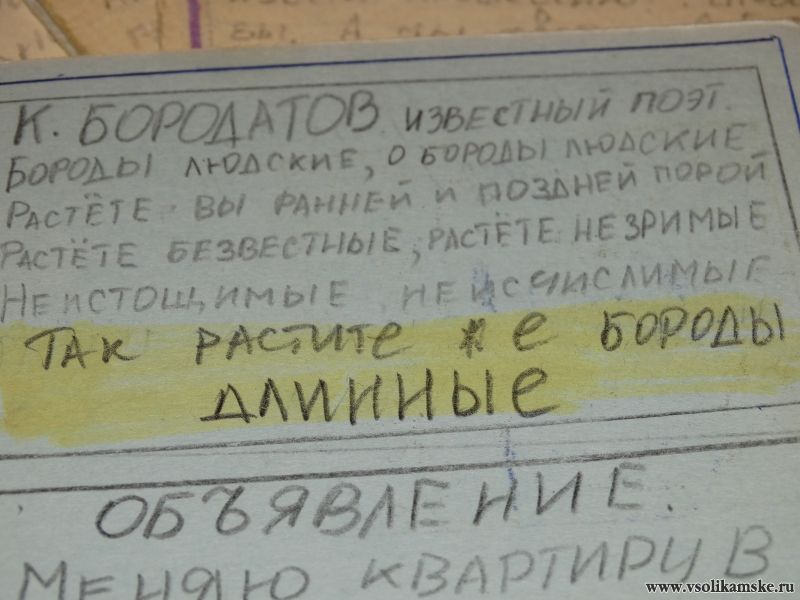 К. БОРОДАТОВ ИЗВЕСТНЫЙ ПОЭТ.
БОРОДЫ ЛЮДСКИЕ, О БОРОДЫ ЛЮДСКИЕ
РАСТЁТЕ ВЫ РАННЕЙ И ПОЗДНЕЙ ПОРОЙ
РАСТЁТЕ БЕЗВЕСТНЫЕ, РАСТЁТЕ НЕЗРИМЫЕ
НЕИСТОЩИМЫЕ НЕИСЧИСЛИМЫЕ
ТАК РАСТИТЕ ЖЕ БОРОДЫ
ДЛИННЫЕ
ОБЪЯВЛЕНИЕ.
МЕНЯЮ КВАРТИРУ В
www.vsolikamske.ru